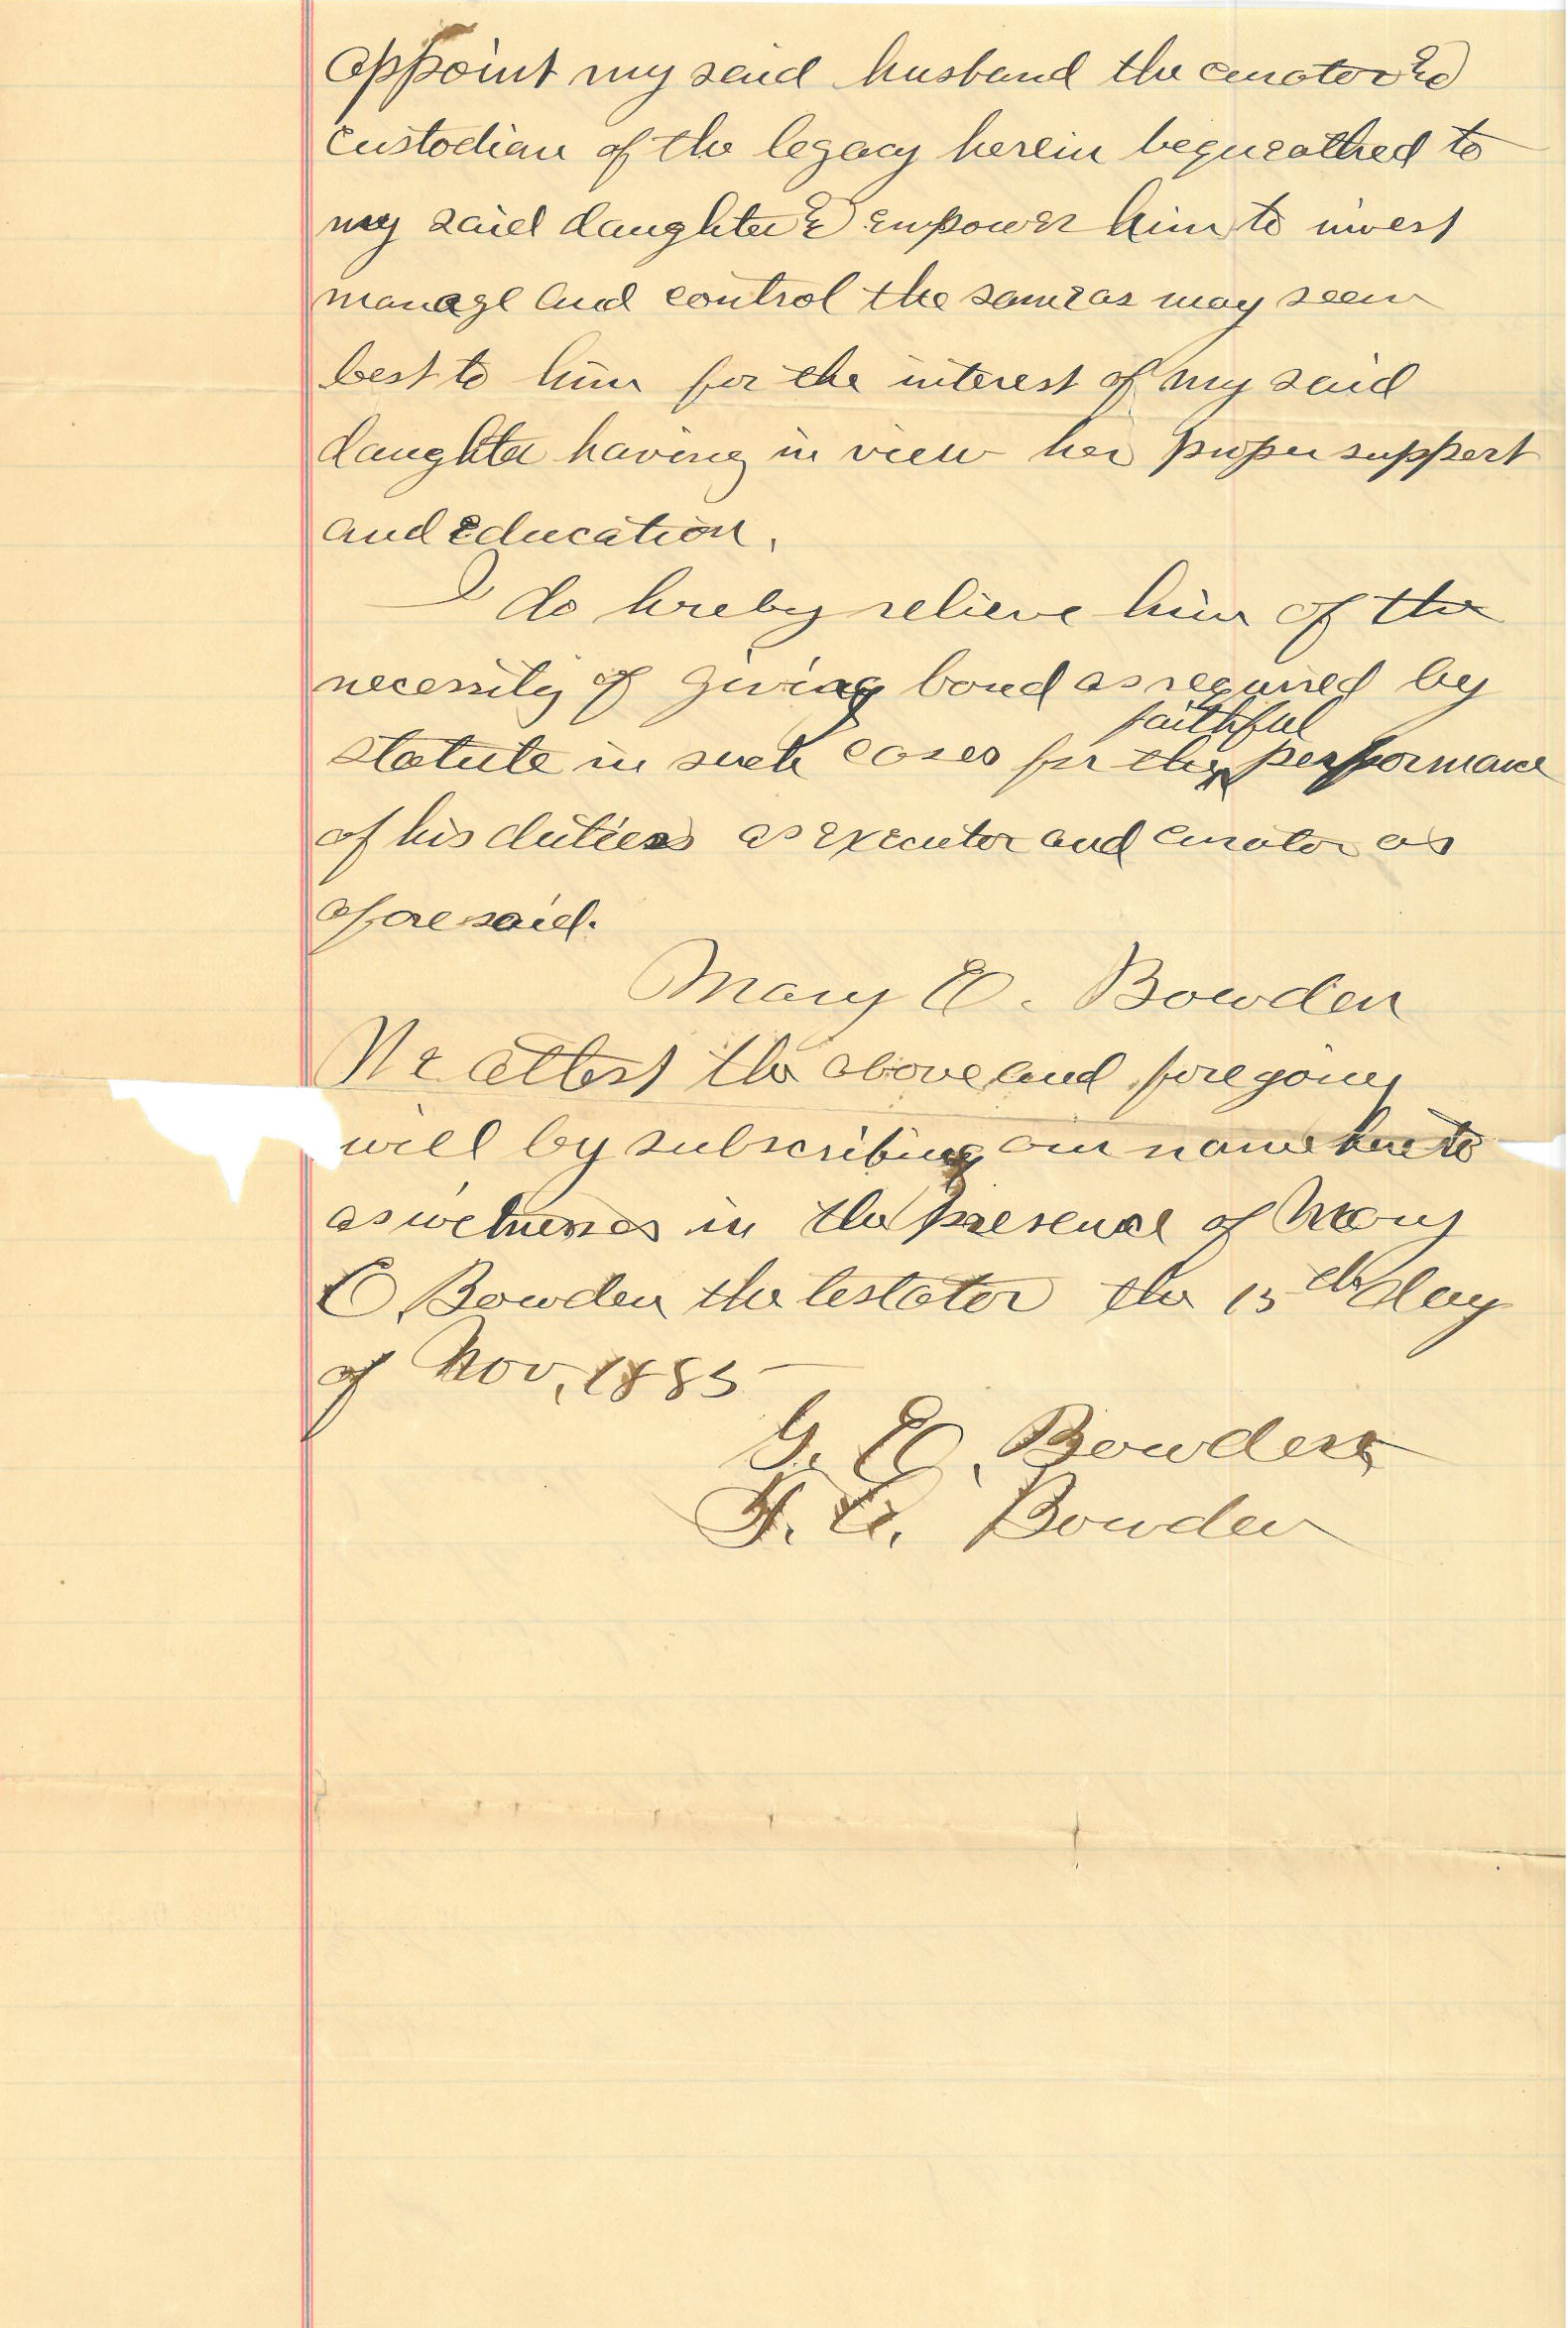 appoint my said husband the curator &
custodian of the legacy herein bequeathed to
my said daughter & empower him to invest
manage and control the same as may seem
best to him for the interest of my said
daughter having in view her proper support
and education.
I do hereby relieve him of the
necessity of giving bond as required by
faithful
statute in such cases for the performance
of his duties as executor and curator as
aforesaid.
Mary E. Bowden
We attest the above and foregoing
will by subscribing our name hereto
as witnesses in the presence of Mary
E. Bowden the testator the 15th day
of Nov, 1885
G. E. Bowden
Bowden